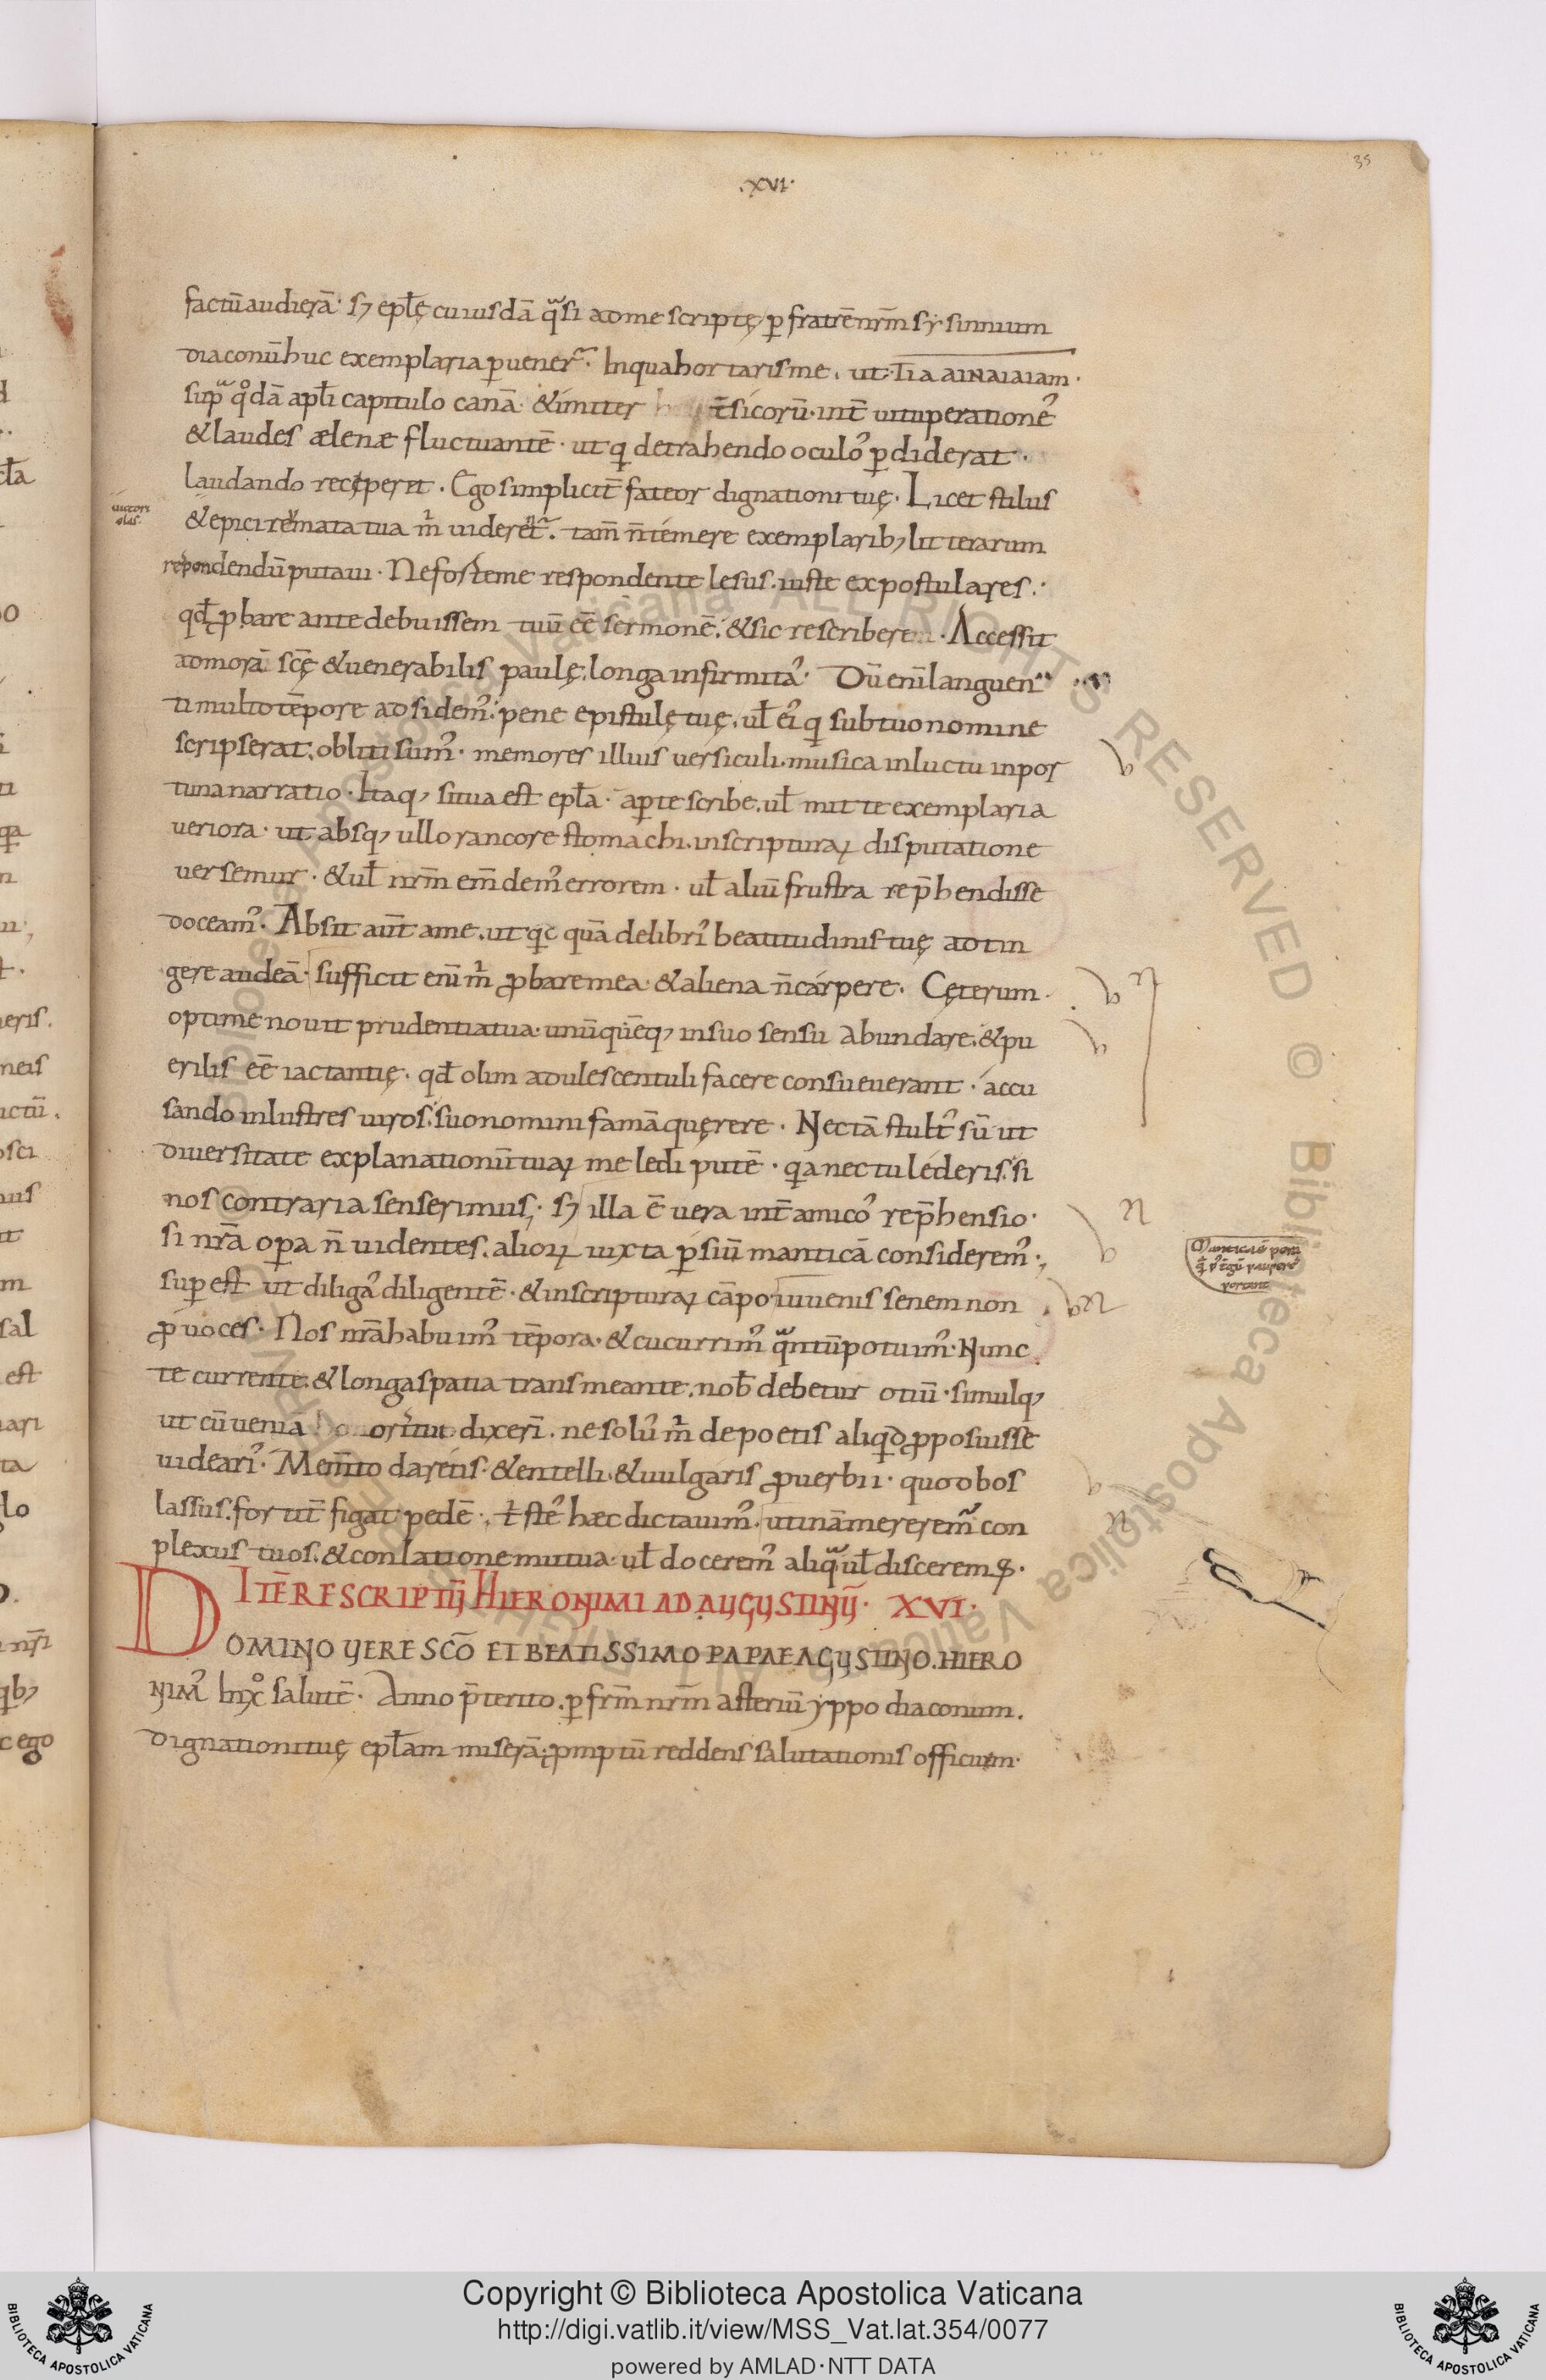 35
.XVI.
factū audierā· sꝫ epłę cuiusdā qͣsi adme scriptę ꝑ fratrē nr̄m sysinnium
diaconū huc exemplaria ꝑuener̄. Inqua hortaris me. ut·
sup̱ͣ qͦdā apłi capitulo canā· &imiter t̄sicorū·int̄ uituperationē
&laudes ælenæ fluctuantē· ut q detrahendo oculoʾ ꝑdiderat·
laudando recęperit. Ego simplicit̄ fateor dignationi tuę. Licet stilus
&epiciremata tua m̊ uiderēt̄. tam̄ n̄témere exemplaribꝫ litterarum
respondendū putaui· Ne forteme respondente lesus.iuste expostulares.·
qđ ꝓbare antedebuissem tuū ēē sermonē.&sic rescriberem· Accessit
admorā scę̄ &uenerabilis paulę.longa infirmitaʾ· Dū enī languen
ti multo tēpore adsidemʾ. pene epistulę tuę.uł eiʾ q subtuonomine
scripserat.obliti sumʾ· memores illius uersiculi.musica inluctu inpor
tuna narratio· Itaqꝫ situa est epła· aꝑte scribe.uł mitte exemplaria
ueriora· ut absqꝫ ullo rancore stomachi.inscripturaꝝ disputatione
uersemur· &uł nr̄m em̄demʾ errorem· uł aliū frustra rep̄hendisse
doceamʾ. Absit aut̄ ame.ut qc quā delibriʾ beatitudinis tuę attin
gere audeā· sufficit enī m̊ ꝓbare mea·&aliena n̄ cárpere. Cęterum·
optime nouit prudentia tua·unū quēqꝫ insuo sensu abundare.&pu
erilis ēē iactantię. qđ olim adulescentuli facere consueuerant· accu
sando inlustres uiros.suonomini famā quęrere· Nectā stultʾ sū ut
diuersitate explanationū tuaꝝ me ledi putē· qa nec tu léderis.si
nos contraria senserimus; sꝫ illa ē uera int̄ amicoʾ rep̄hensio·
si nr̄ā oꝑa n̄ uidentes.alioꝝ iuxta ꝑsiū manticā consideremʾ.;
supest ut diligaʾ diligentē·&inscripturaꝝ cāpo iuuenis senem non
ꝓuoces· Nos nr̄a habuimʾ tēpora·&cucurrimʾ qͣntū potuimʾ·Nunc
te currente.&longa spatia transmeante.nob̄ debetur otiū·simulqꝫ
ut cū ueniā dixerī. ne solūʾ m̊ de poetis aliqđ ꝓposuisse
uideariʾ· Mem̄to darétis·&entelli.&uulgaris ꝓuerbii· quod bos
lassus.fortiʾ figat pedē. tsteʾ hæc dictauimʾ.utinā merermʾ con
plexus tuos.&conlatione mutua·uł doceremʾ aliqͣ uł disceremʾ.
ITĒ RESCRIPTŪ HIERONIMI AD AUGUSTINŪ· XVI·
DOMINO UERE SCŌ ET BEATISSIMO PAPAE AGUSTINO.HIERO
NIMʾ Inxͦ salutē· Anno p̄terito.ꝑ frm̄ nr̄m asteriū yppodiaconum.
dignationi tuę epłam miserā.ꝓmptū reddens salutationis officium·
Copyright © Biblioteca Apostolica Vaticana
http://digi.vatlib.it/view/MSS_Vat.lat.354/0077
powered by AMLAD·NTT DATA
BIBLIOTECA APOSTOLICA VATICANA
BIBLIOTECA APOSTOLICA VATICANA